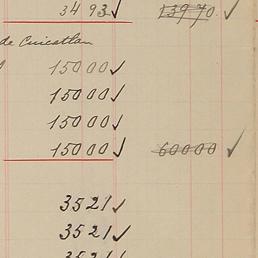 34 93 ✓ 139 70 ✓
de Cuicatlan
150 00 ✓
150 00 ✓
150 00 ✓
150 00 ✓ 600 00 ✓
35 21 ✓
35 21 ✓
35 21 ✓